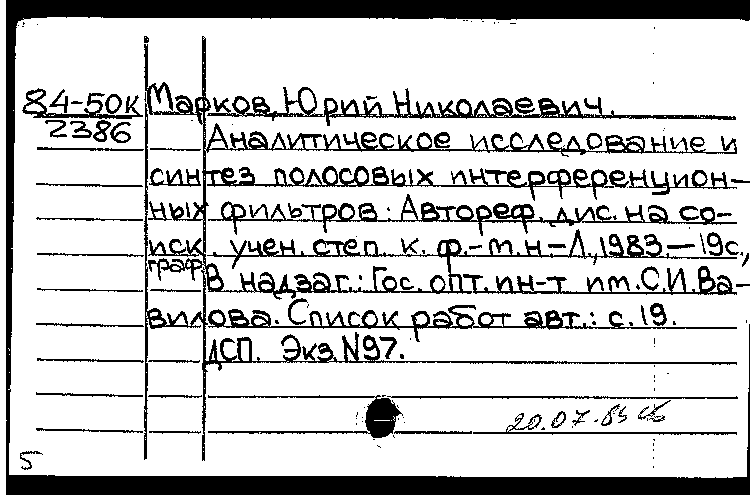 84-50к Марков, Юрий Николаевич.
2386 Аналитическое исследование и
синтез полосовых интерференцион-
ных фильтров: Автореф. дис. на со-
иск. учен. степ. к. ф.-м.н-Л.,1983.-19с.,
граф В надзаг.: Гос. опт. ин-т им. С.И. Ва-
вилова. Список работ авт.: с. 19.
ДСП. Экз N97.
20.07.
5